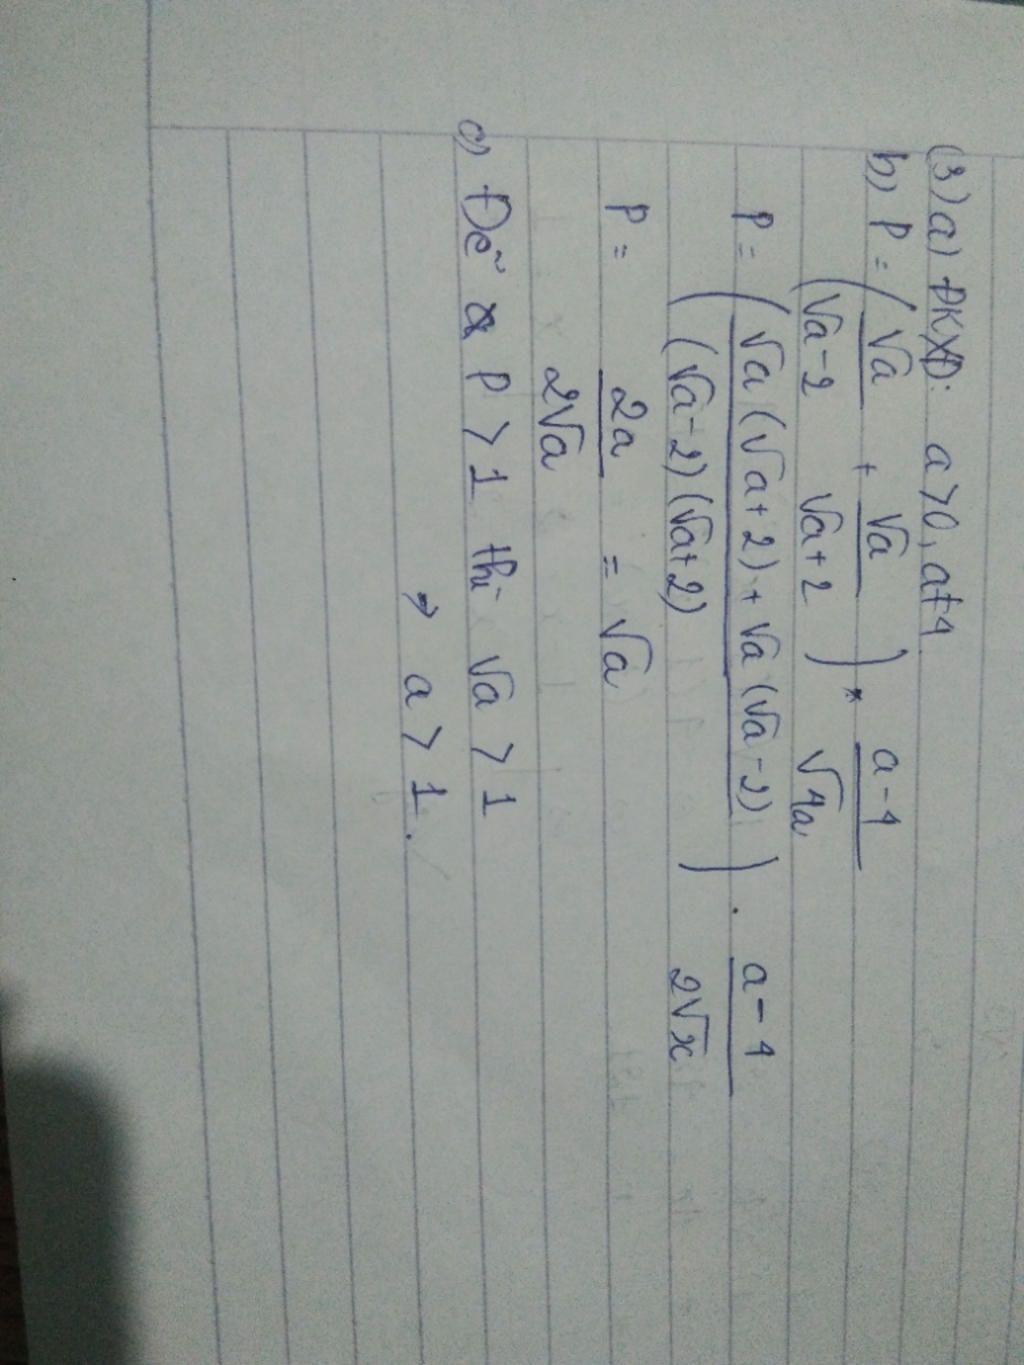 (3) a) ĐKXĐ: a > 0, a ≠ 4
b) P = ( √a / √a - 2 + √a / √a + 2 ) * a - 4 / √4a
P = ( √a (√a + 2) + √a (√a - 2) / (√a - 2) (√a + 2) ) . a - 4 / 2√x
P = 2a / 2√a = √a
c) Để P > 1 thì √a > 1
→ a > 1.